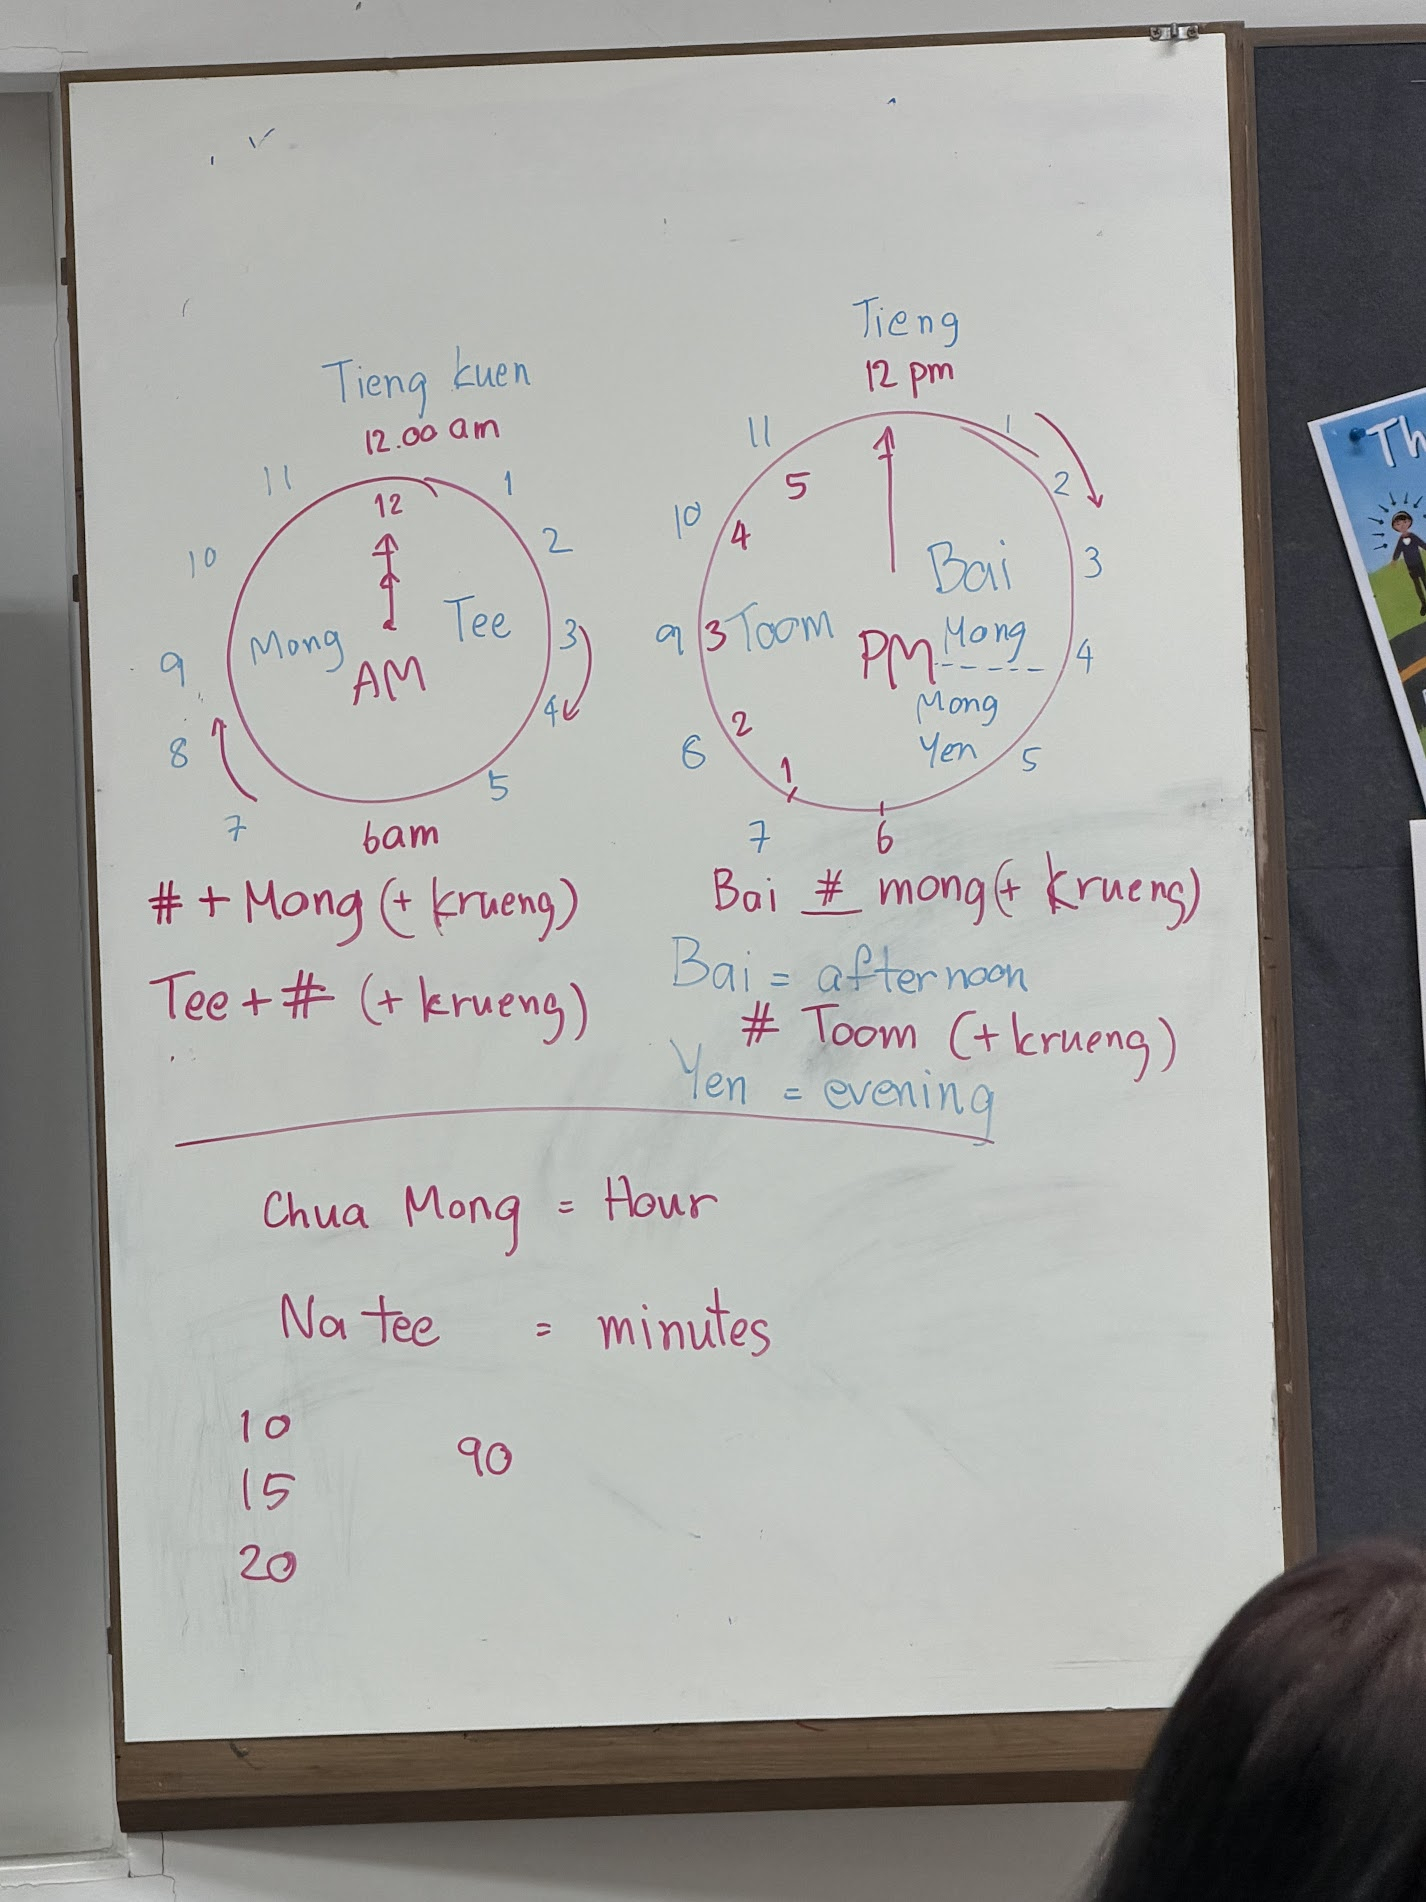 Tieng kuen
12.00 am
11
12
1
10
2
Mong
Tee
3
9
AM
4
8
5
7
6am
# + Mong (+ krueng)
Tee + # (+ krueng)
Tieng
12 pm
11
1
5
2
10
4
Bai
3
9
3
Toom
PM
Mong
4
2
Mong
8
Yen
5
1
7
6
Bai # mong (+ krueng)
Bai = afternoon
# Toom (+ krueng)
Yen = evening
Chua Mong = Hour
Na tee = minutes
10
90
15
20
Th